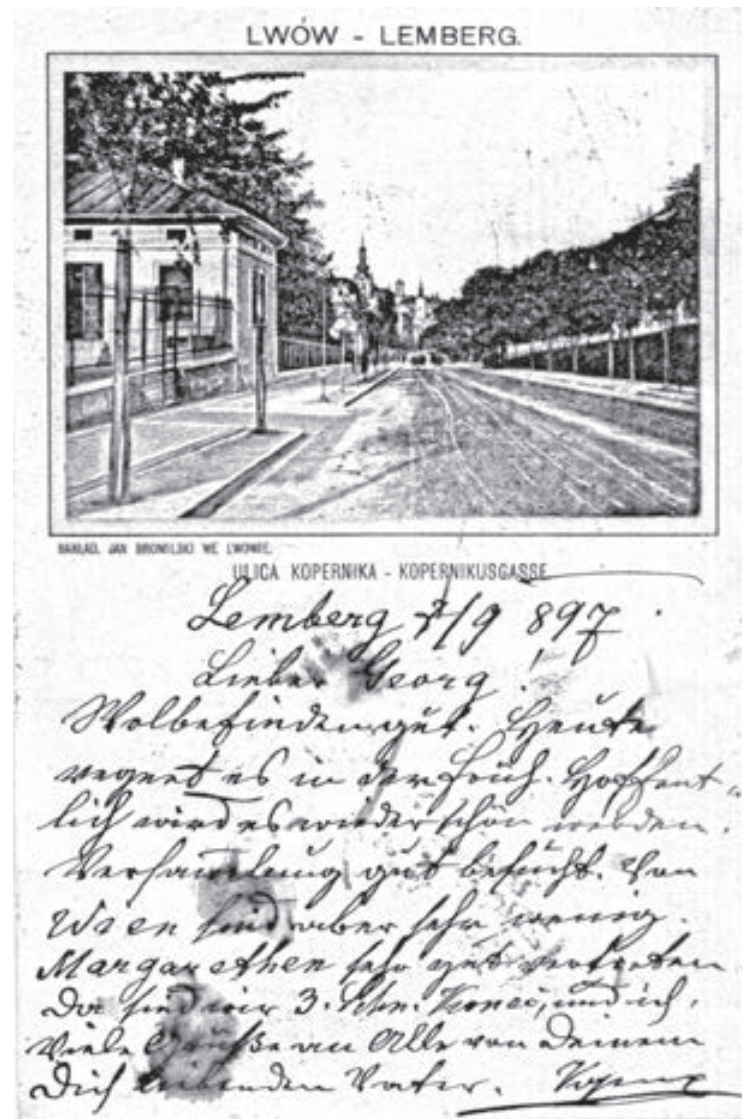 LWÓW - LEMBERG.
NAKŁAD. JAN BROMILSKI WE LWOWIE.
ULICA KOPERNIKA - KOPERNIKUSGASSE
Lemberg 7/9 897.
Lieber Georg!
Wolbefinden gut. Heute
regnet es in der Früh. Hoffent-
lich wird es wieder schön werden.
Versamlung gut besucht. Von
Wien sind aber sehr wenig.
Margarethen sehr gut vertreten
Da sind wir 3. und ich,
Viele Grüße an Alle von Deinem
Dich liebenden Vater.